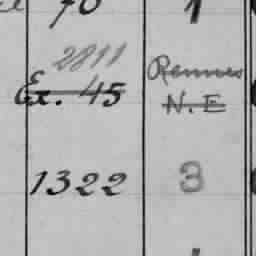 70 1
2811 Rennes
Ex. 45 N. E
1322 3